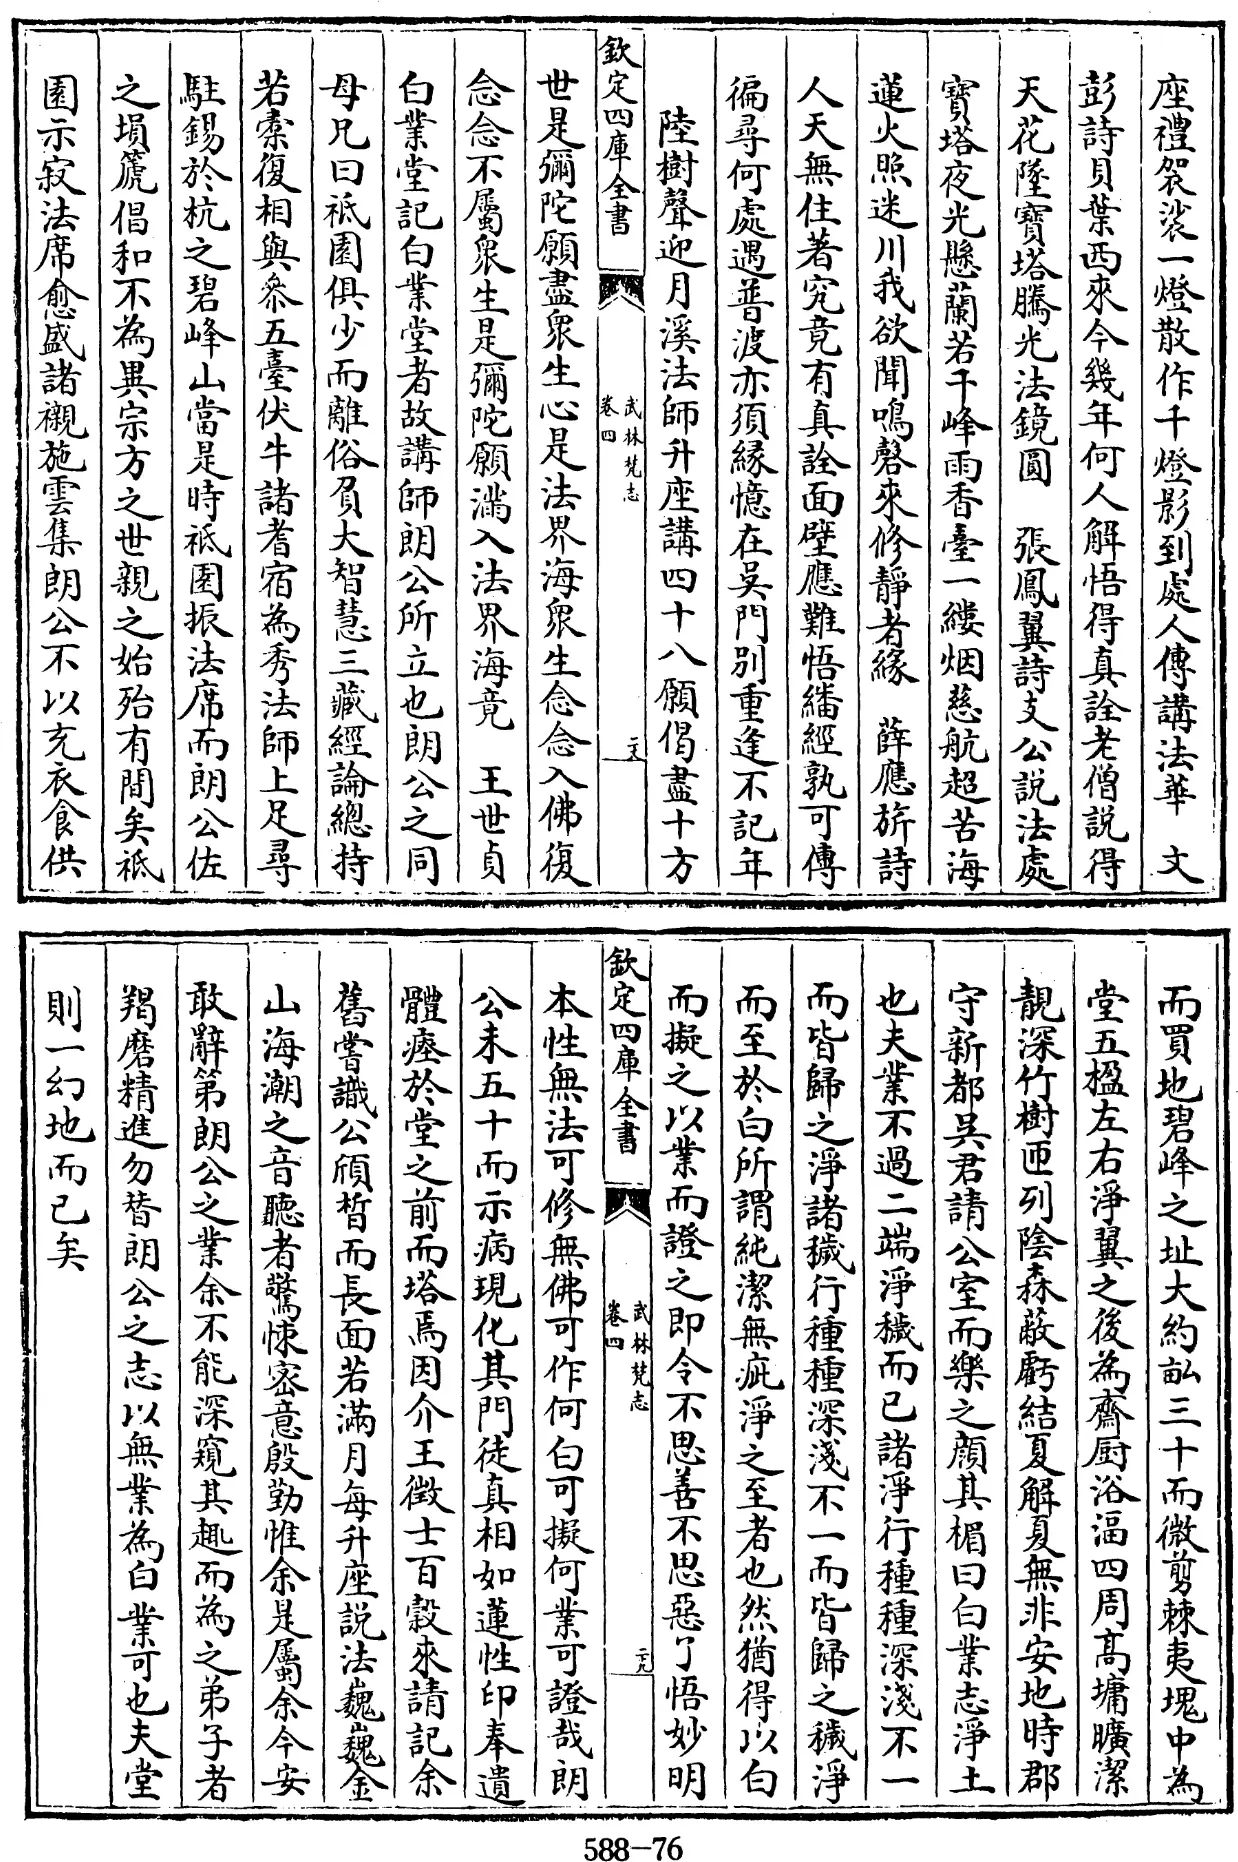 座禮袈裟一燈散作千燈影到處人傳講法華　文
彭詩貝葉西來今幾年何人解悟得真詮老僧説得
天花墜寶塔騰光法鏡圓　張鳳翼詩支公説法處
寶塔夜光懸蘭若千峰雨香臺一縷烟慈航超苦海
蓮火照迷川我欲聞鳴磬來修靜者緣　薛應旂詩
人天無住著究竟有真詮面壁應難悟繙經孰可傳
徧尋何處遇普波亦須緣憶在吳門别重逢不記年
陸樹聲迎月溪法師升座講四十八願偈盡十方
欽定四庫全書
武林梵志
卷四
二十八
世是彌陀願盡衆生心是法界海衆生念念入佛復
念念不屬衆生是彌陀願滿入法界海竟　王世貞
白業堂記白業堂者故講師朗公所立也朗公之同
母兄曰祇園俱少而離俗負大智慧三藏經論總持
若橐復相與叅五臺伏牛諸耆宿為秀法師上足尋
駐錫於杭之碧峰山當是時祇園振法席而朗公佐
之塤箎倡和不為異宗方之世親之始殆有間矣祇
園示寂法席愈盛諸襯施雲集朗公不以充衣食供
而買地碧峰之址大約畝三十而微剪棘夷塊中為
堂五楹左右淨翼之後為齋厨浴湢四周高墉曠潔
靚深竹樹匝列陰森蔽虧結夏解夏無非安地時郡
守新都吳君請公室而樂之顔其楣曰白業志淨土
也夫業不過二端淨穢而已諸淨行種種深淺不一
而皆歸之淨諸穢行種種深淺不一而皆歸之穢淨
而至於白所謂純潔無疵淨之至者也然猶得以白
而擬之以業而證之即令不思善不思惡了悟妙明
欽定四庫全書
武林梵志
卷四
二十九
本性無法可修無佛可作何白可擬何業可證哉朗
公未五十而示病現化其門徒真相如蓮性印奉遺
體瘞於堂之前而塔焉因介王徵士百穀來請記余
舊嘗識公頎晳而長面若滿月每升座説法巍巍金
山海潮之音聽者驚悚密意殷勤惟余是屬余今安
敢辭第朗公之業余不能深窺其趣而為之弟子者
羯磨精進勿替朗公之志以無業為白業可也夫堂
則一幻地而已矣
588-76